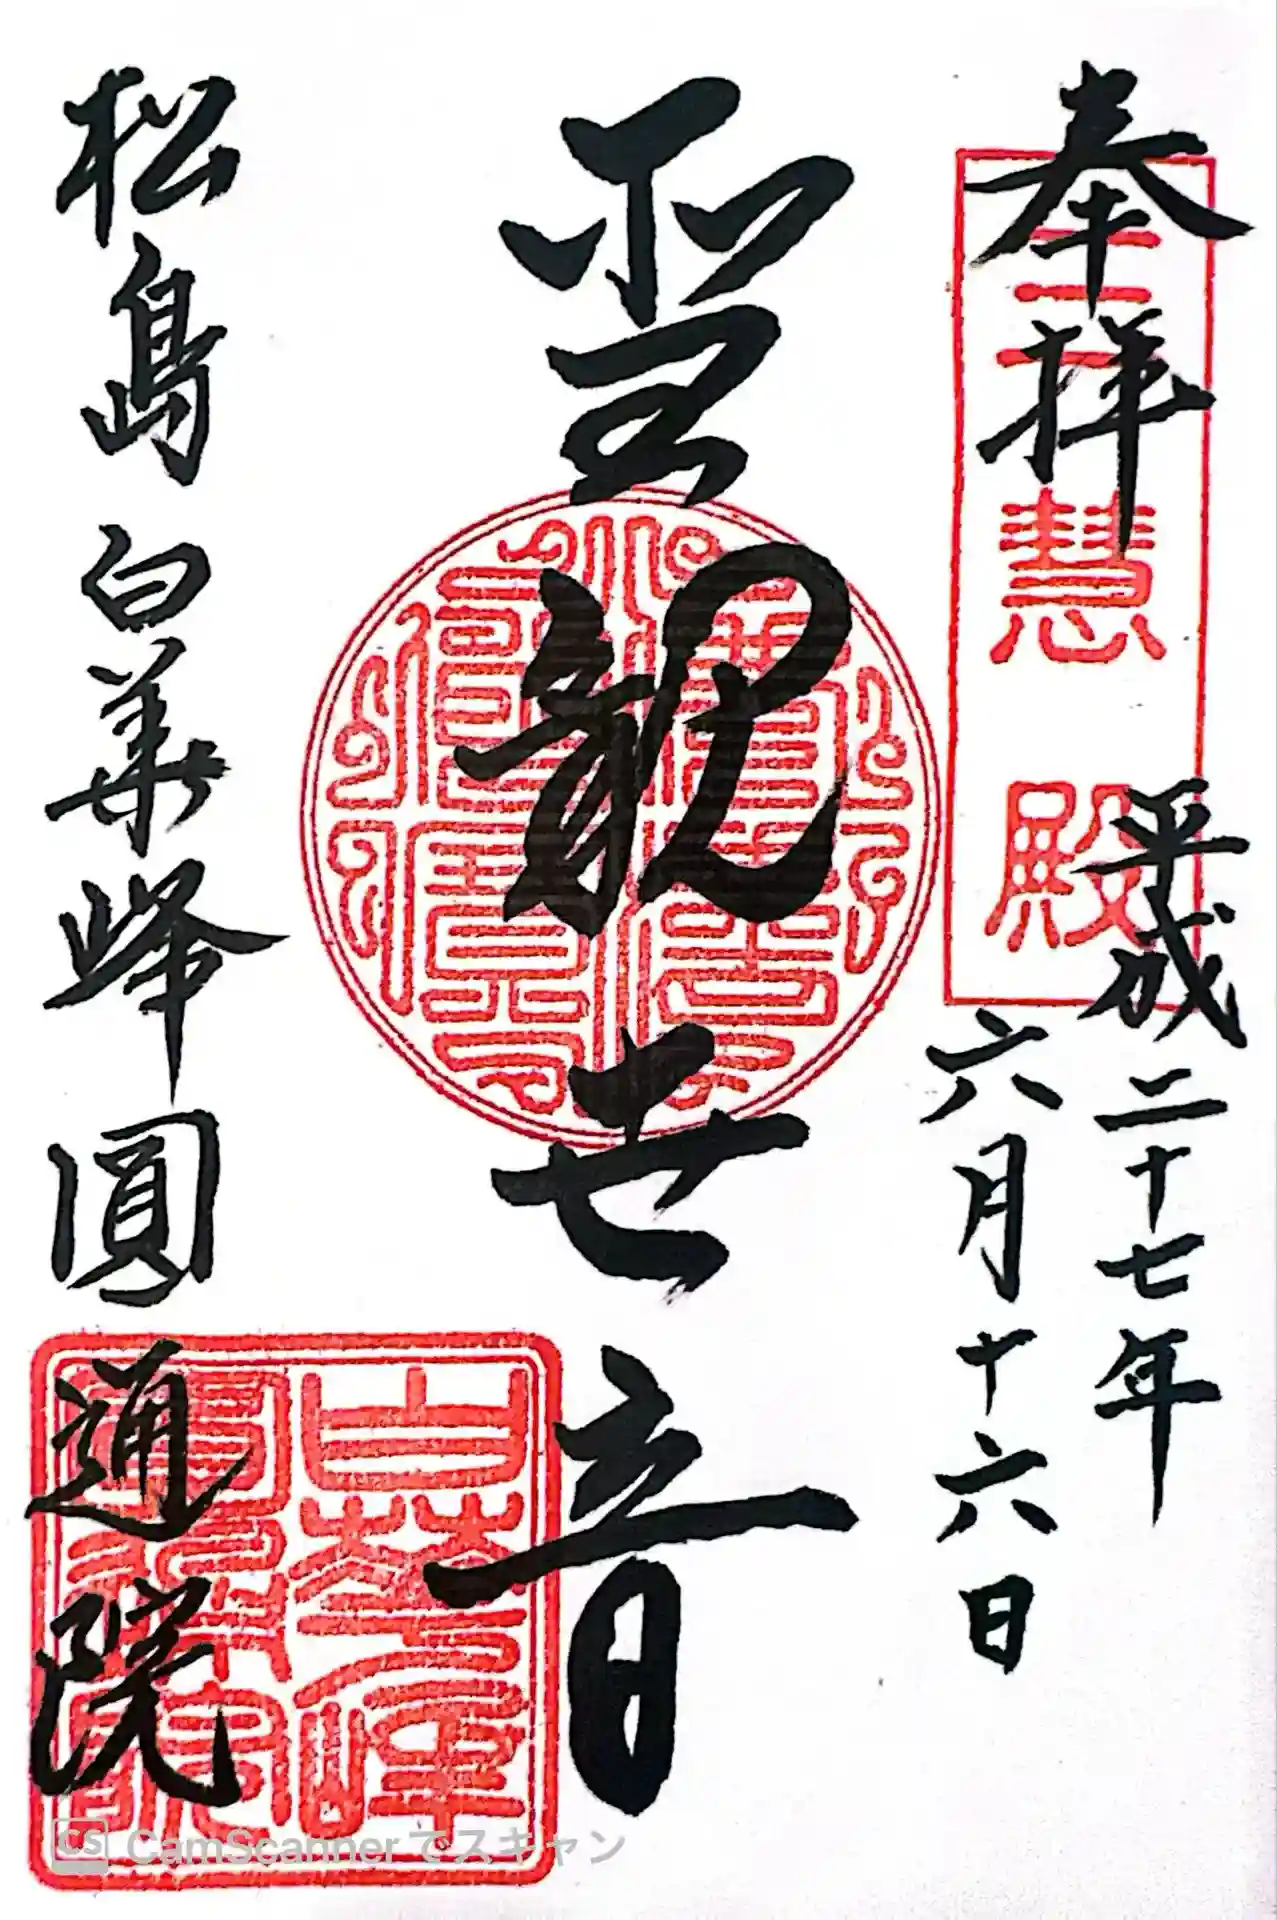 奉拝
三慧殿
平成二十七年
六月十六日
聖観世音
松島白華峰圓通院
CS CamScannerでスキャン